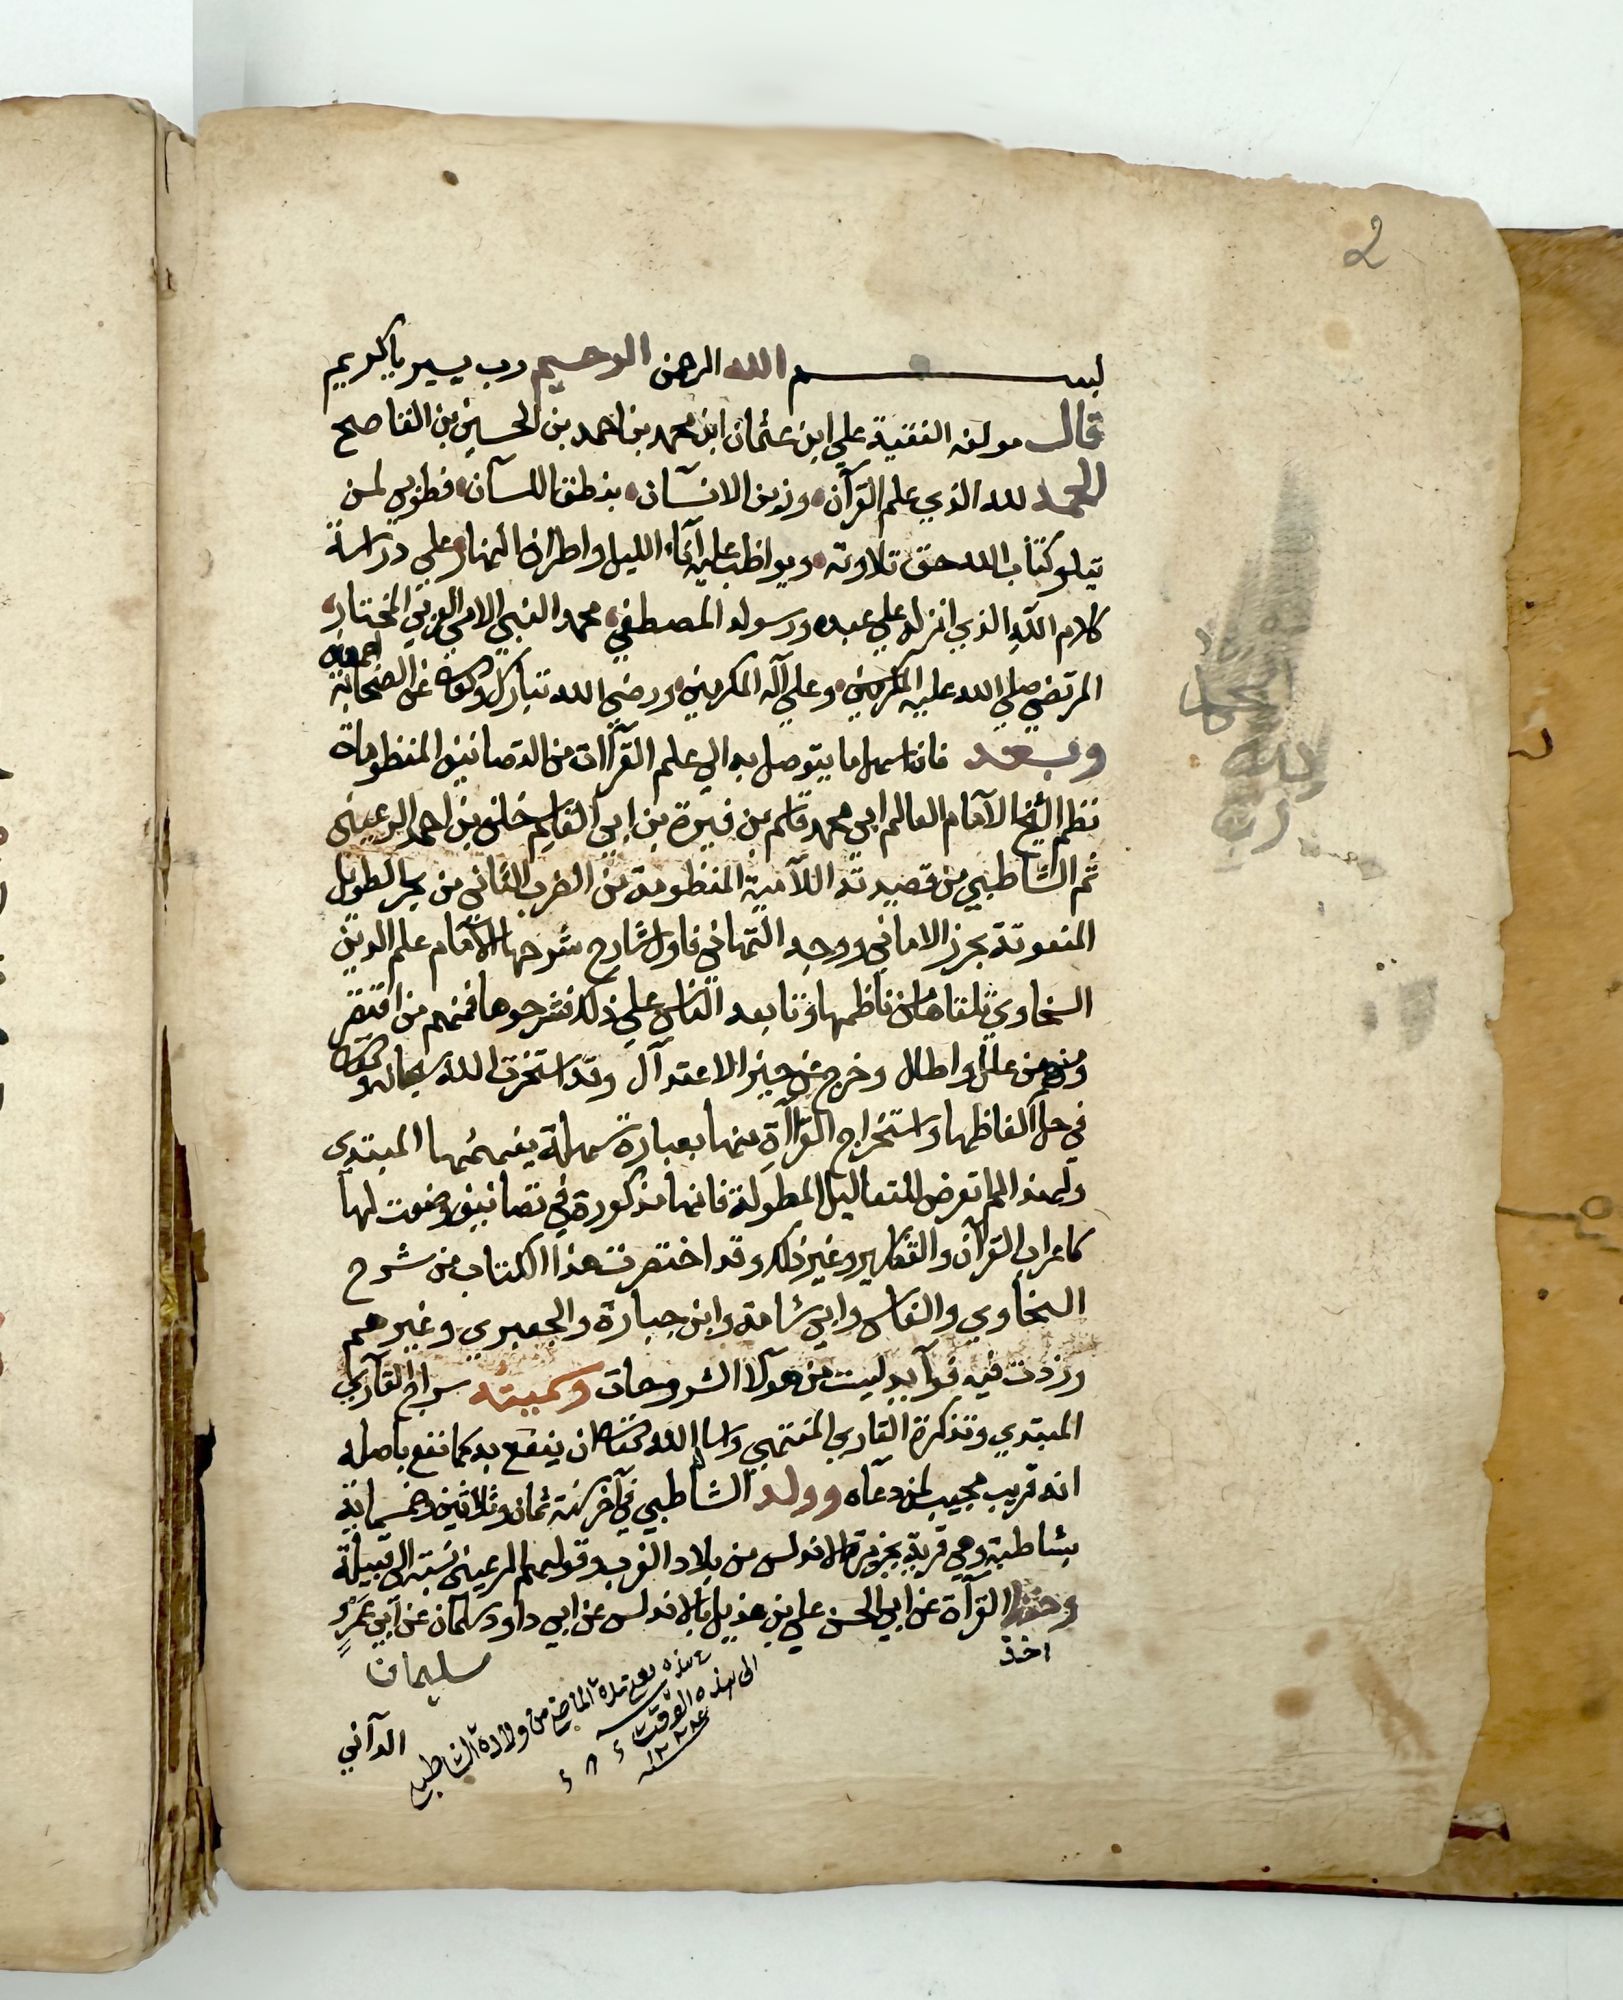 2
بسم الله الرحمن الرحيم رب يسر ياكريم
قال مولفه الفقية علي ابن عثمان ابن محمد بن احمد بن الحسين بن القاصح
الحمد لله الذي علم القرآن وزين الانسآن بنطق اللسآن فطوبى لمن
يتلو كتاب الله حق تلاوته ويواظب عليه آناء الليل واطراف النهار على دراسة
كلام الله الذي انزله على عبده ورسوله المصطفى محمد النبي الامي العربي المختار
المرتضى صلى الله عليه وعلى آله المكرمين ورضي الله تبارك وتعالى عن الصحابة
اجمعين
وبعد فان اسهل ما يتوصل به الى علم القرآات من التصانيف المنظومات
نظم الشيخ الامام العالم ابي محمد قاسم بن فيرة بن ابي القاسم خلف بن احمد الرعيني
ثم الشاطبي من قصيدته اللآمية المنظومة من الضرب الثاني من بحر الطويل
المنعوتة بحرز الاماني ووجه التهاني فاول شارح شرحها الامام علم الدين
السخاوي تلقاها من ناظمها وتابعه الناس على ذلك فشرحوها فمنهم من اقتصر
ومنهم من علل واطال وخرج عن حيز الاعتدآل وقد استخرت الله سبحانه وتعالى
في حل الفاظها واستخراج القرآءة منها بعبارة سهلة يفهمها المبتدى
ولهذا لم اتعرض للتعاليل المطولة فانها مذكورة في تصانيف وضعت لها
كاعراب القرآن والتفاسير وغير ذلك وقد اختصرت هذا الكتاب من شرح
السخاوي والفاسي وابي شامة وابن جبارة والجعبري وغيرهم
وزدت فيه فوآيد ليست من هولآ الشروحات وسميته سراج القاري
المبتدي وتذكرة القاري المنتهي واسال الله تعالى ان ينفع به كما نفع باصله
انه قريب مجيب لمن دعاه وولد الشاطبي في آخر سنة ثمان وثلاثين وخمسمائة
بشاطبة وهي قرية بجزيرة الاندلس من بلاد الغرب وقولهم الرعيني نسبة الى قبيلة
القرآة عن ابي الحسن علي بن هذيل بالاندلس عن ابي داود سليمان عن ابي عمرو
اخذ
سليمان
الدآني
هذه مدة الماضي من ولادة الشاطبي
الى هذه الوقت